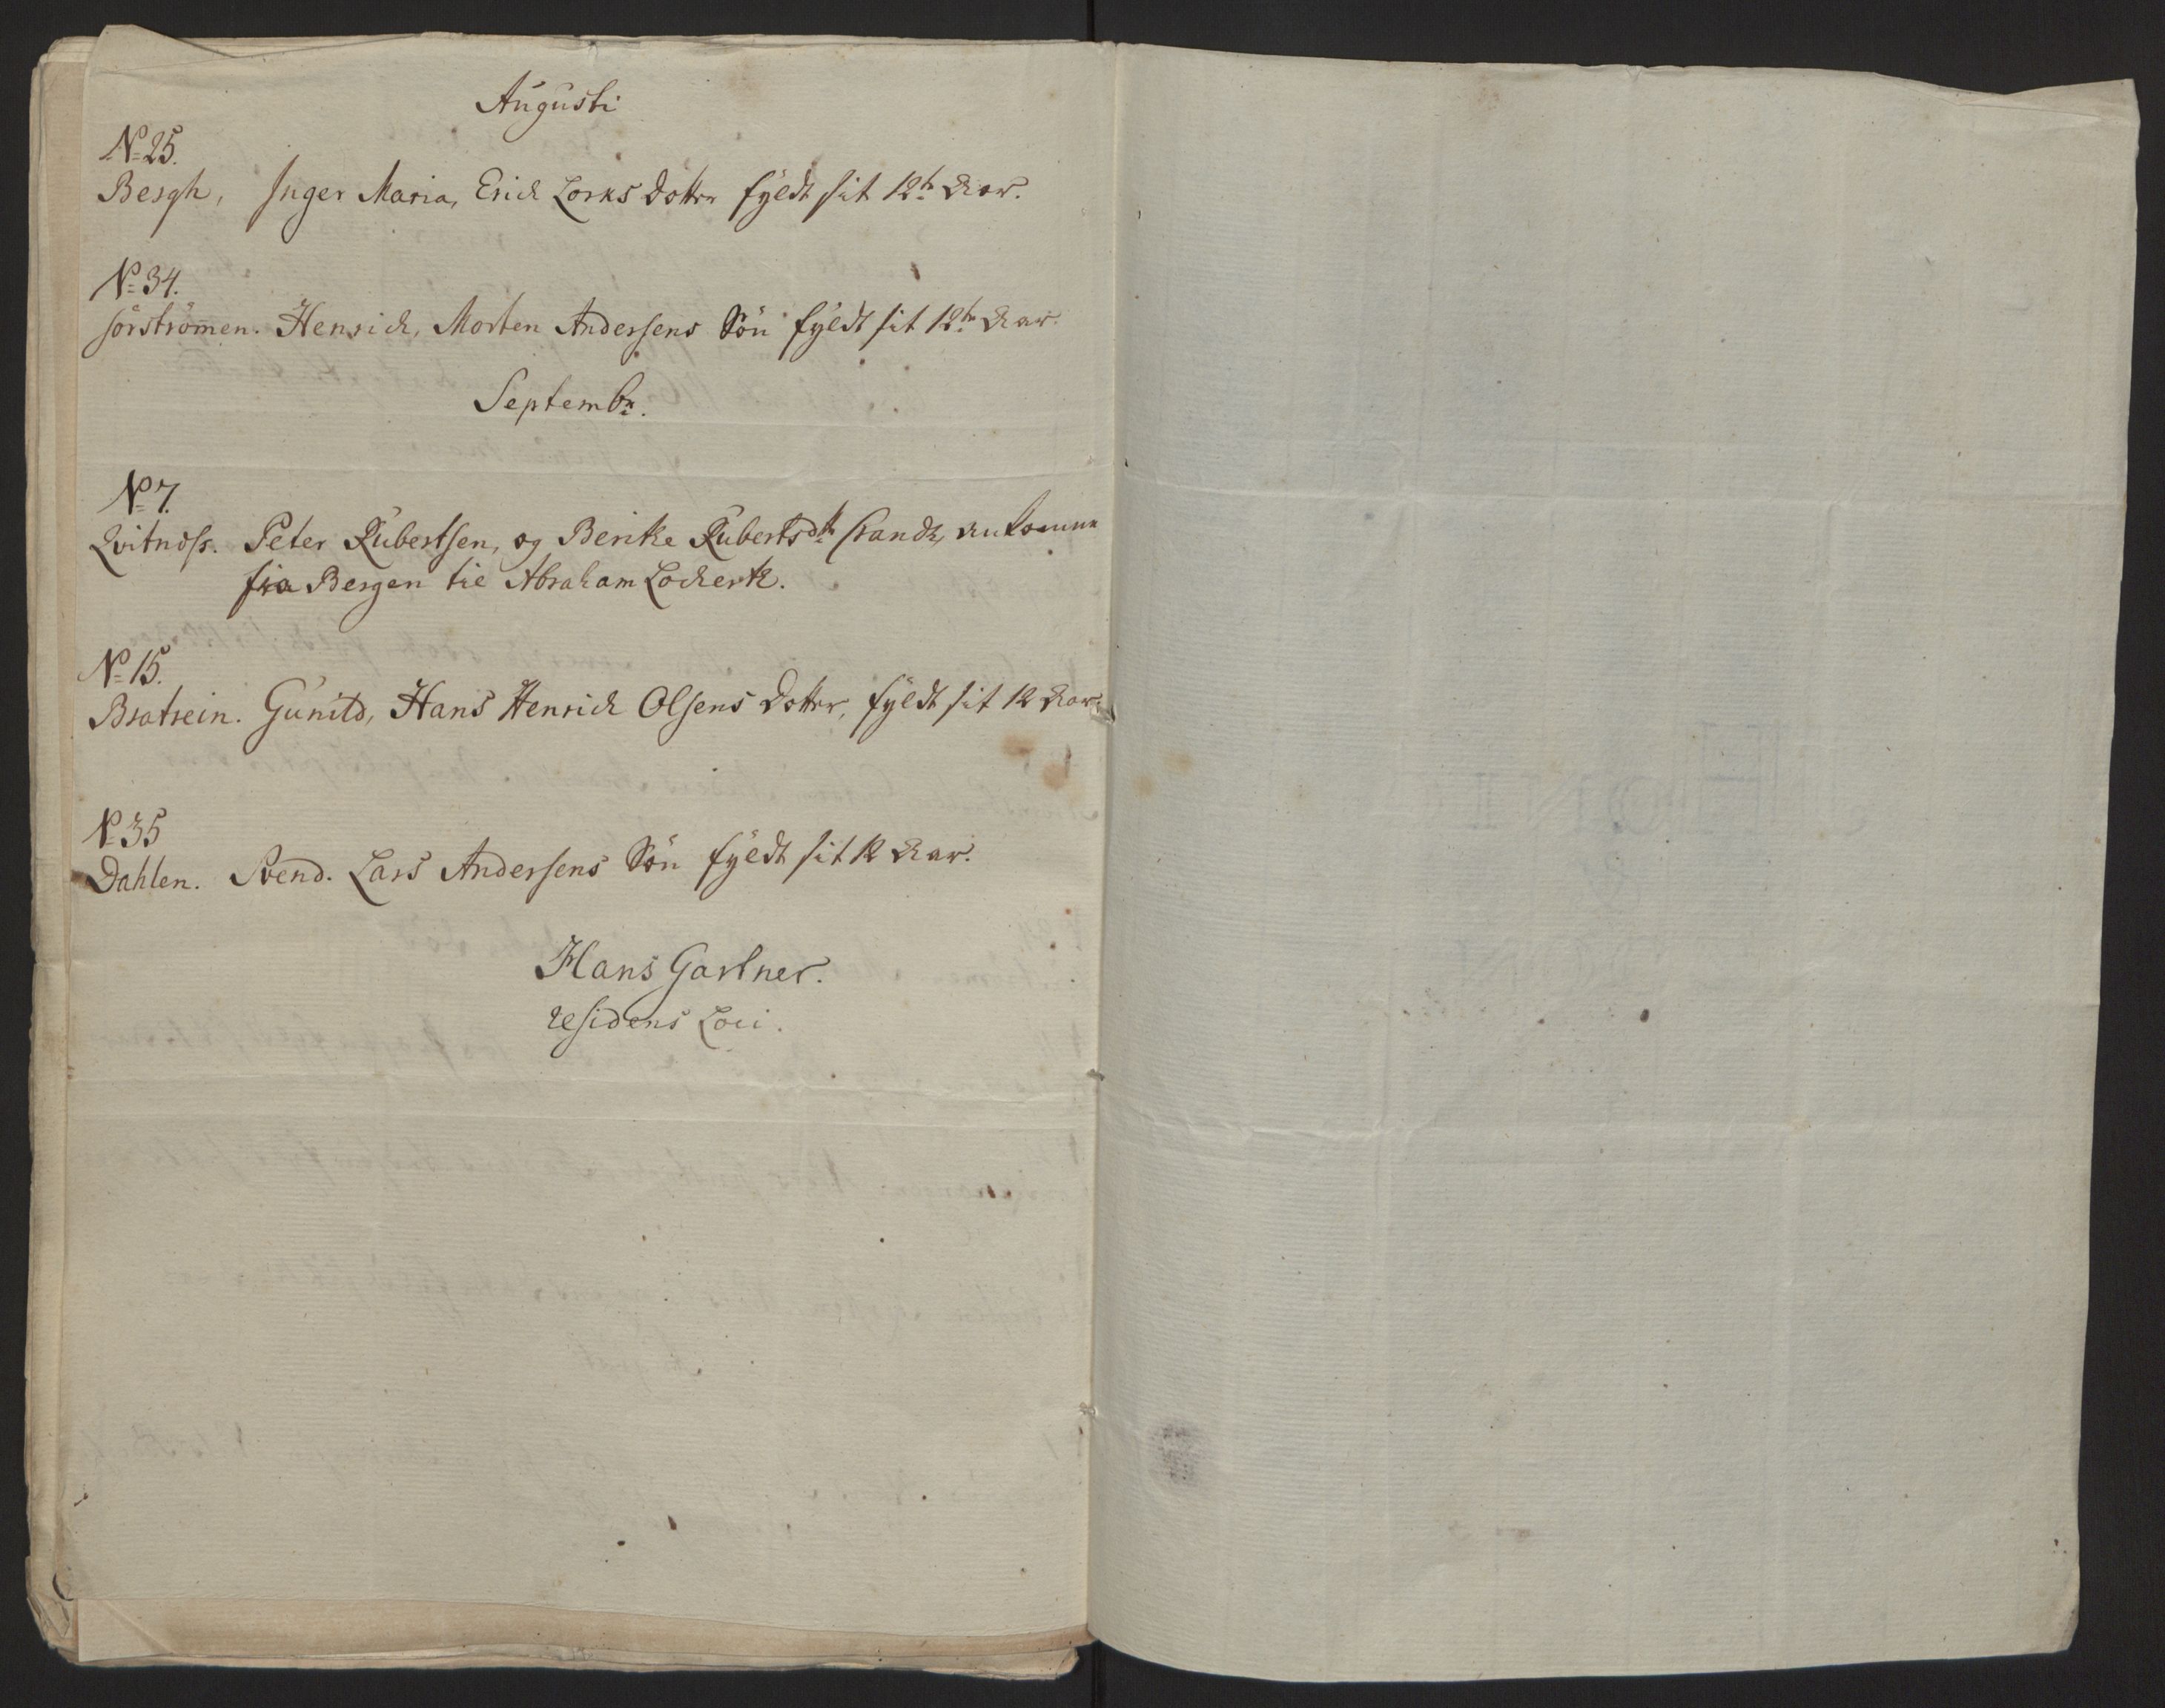 Augusti
No 25.
Bergh, Inger Maria, Erich Lorks Dotter fyldt sit 12te Aar.
No 34.
Sörströmen. Henrich, Morten Andersens Sön fyldt sit 12te Aar.
Septembr.
No 7.
Qvitness. Peter Rubertsen, og Beritke Rubertsdtr ankomne
fra Bergen til Abraham Lockertz.
No 15.
Bratrein. Gunild, Hans Henrich Olsens Dotter, fyldt sit 12 Aar.
No 35
Dahlen. Svend. Lars Andersens Sön fyldt sit 12 Aar.
Hans Gartner.
residens Loci.